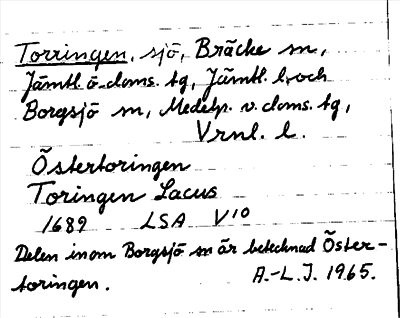 Torringen, sjö, Bräcke sn,
Jämtl. ö. doms. tg, Jämtl. l. och
Borgsjö sn, Medelp. v. doms. tg,
Vrnl. l.
Östertoringen
Toringen Lacus
1689 LSA V10
Delen inom Borgsjö sn är betecknad Öster-
toringen.
A.-L.J. 1965.